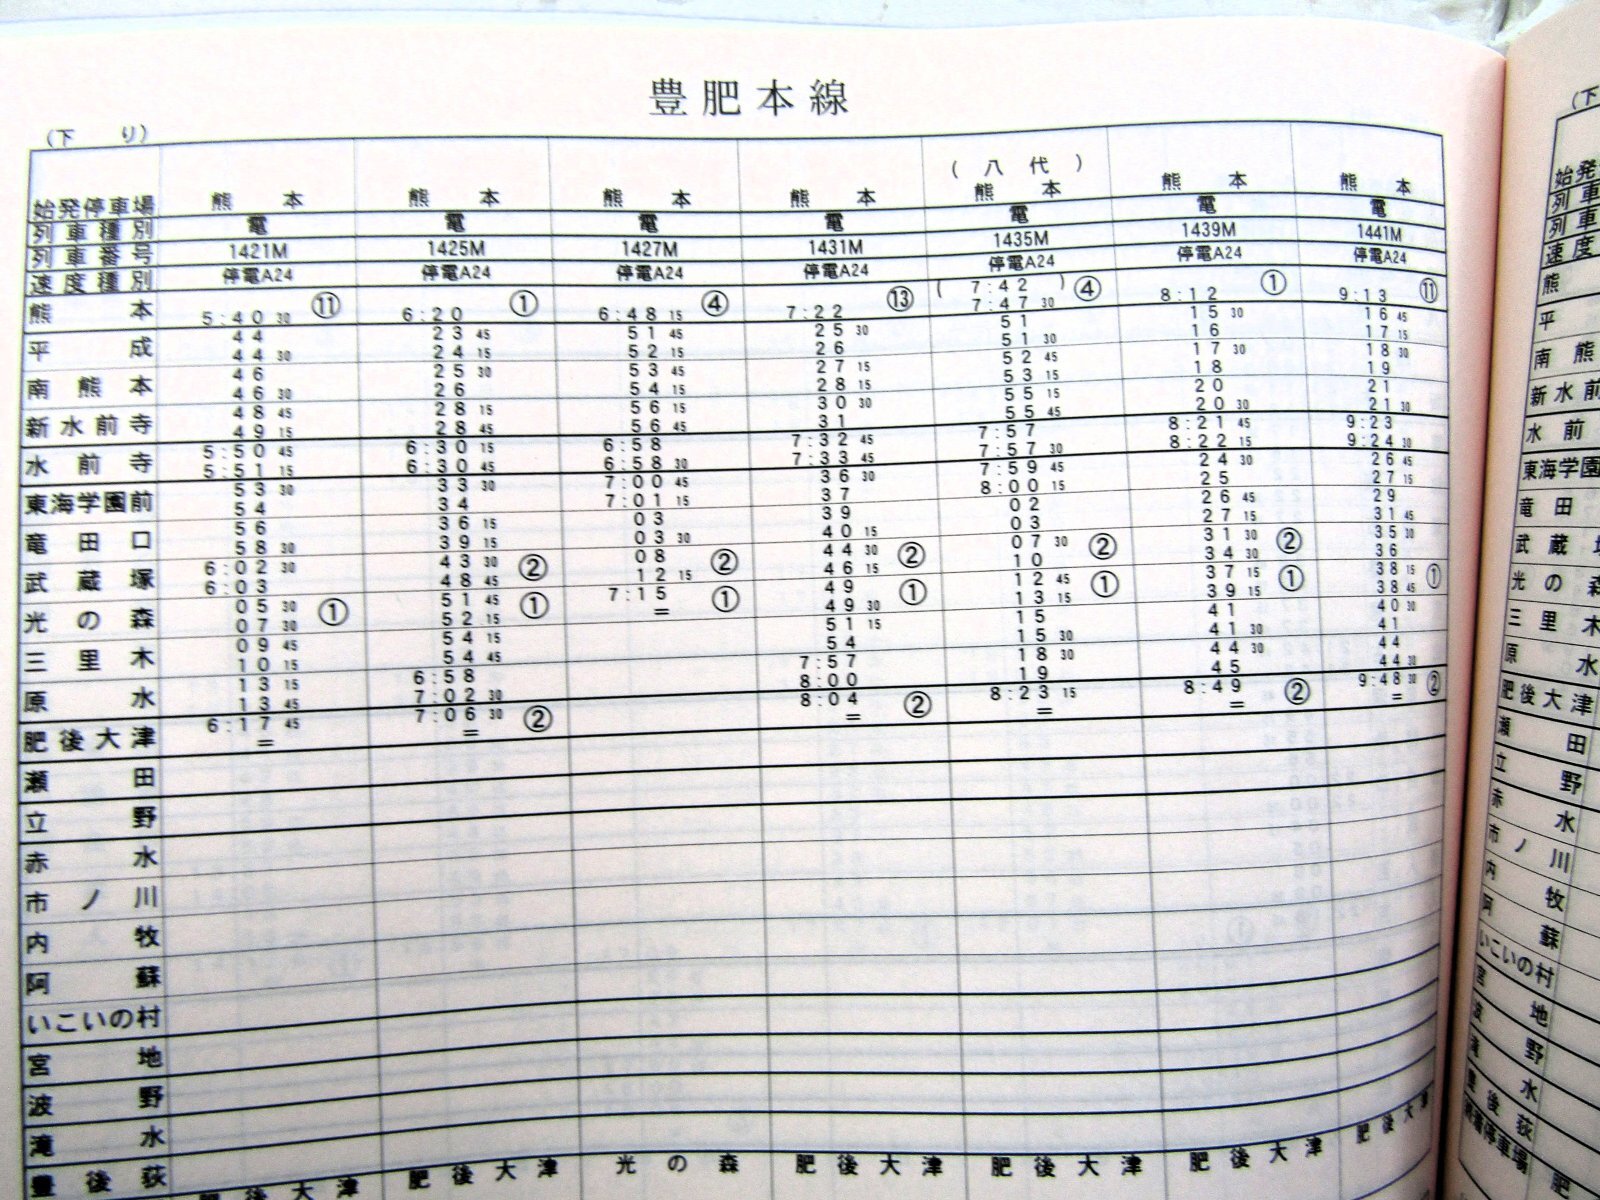 豊肥本線
(下り)
始発停車場 熊本 熊本 熊本 熊本 (八代) 熊本 熊本 熊本
列車種別 電 電 電 電 電 電 電
列車番号 1421M 1425M 1427M 1431M 1435M 1439M 1441M
速度種別 停電A24 停電A24 停電A24 停電A24 停電A24 停電A24 停電A24
(7:42)
熊本 5:40 30 ⑪ 6:20 ① 6:48 15 ④ 7:22 ⑬ 7:47 30 ④ 8:12 ① 9:13 ⑪
44 23 45 51 45 25 30 51 15 30 16 45
平成 44 30 24 15 52 15 26 51 30 16 17 15
46 25 30 53 45 27 15 52 45 17 30 18 30
南熊本 46 30 26 54 15 28 15 53 15 18 19
48 45 28 15 56 15 30 30 55 15 20 21
新水前寺 49 15 28 45 56 45 31 55 45 20 30 21 30
5:50 45 6:30 15 6:58 7:32 45 7:57 8:21 45 9:23
水前寺 5:51 15 6:30 45 6:58 30 7:33 45 7:57 30 8:22 15 9:24 30
53 30 33 30 7:00 45 36 30 7:59 45 24 30 26 45
東海学園前 54 34 7:01 15 37 8:00 15 25 27 15
56 36 15 03 39 02 26 45 29
竜田口 58 30 39 15 03 30 40 15 03 27 15 31 45
6:02 30 43 30 08 44 30 07 30 31 30 35 30
武蔵塚 6:03 48 45 ② 12 15 ② 46 15 ② 10 ② 34 30 ② 36
05 30 51 45 7:15 49 12 45 37 15 38 15
光の森 07 30 ① 52 15 ① = ① 49 30 ① 13 15 ① 39 15 ① 38 45 ①
09 45 54 15 51 15 15 41 40 30
三里木 10 15 54 45 54 15 30 41 30 41
13 15 6:58 7:57 18 30 44 30 44
原水 13 45 7:02 30 8:00 19 45 44 30
6:17 45 7:06 30 8:04 8:23 15 8:49 9:48 30
肥後大津 = = ② = ② = = ② = ②
瀬田
立野
赤水
市ノ川
内牧
阿蘇
いこいの村
宮地
波野
滝水
豊後荻
肥後大津 肥後大津 光の森 肥後大津 肥後大津 肥後大津 肥後大津
(下
始発
列車
列車
速度
熊
平
南熊
新水前
水前
東海学園
竜田
武蔵塚
光の森
三里木
原水
肥後大津
瀬田
立野
赤水
市ノ川
内牧
阿蘇
いこいの村
宮地
波野
滝水
豊後荻
停車場 肥